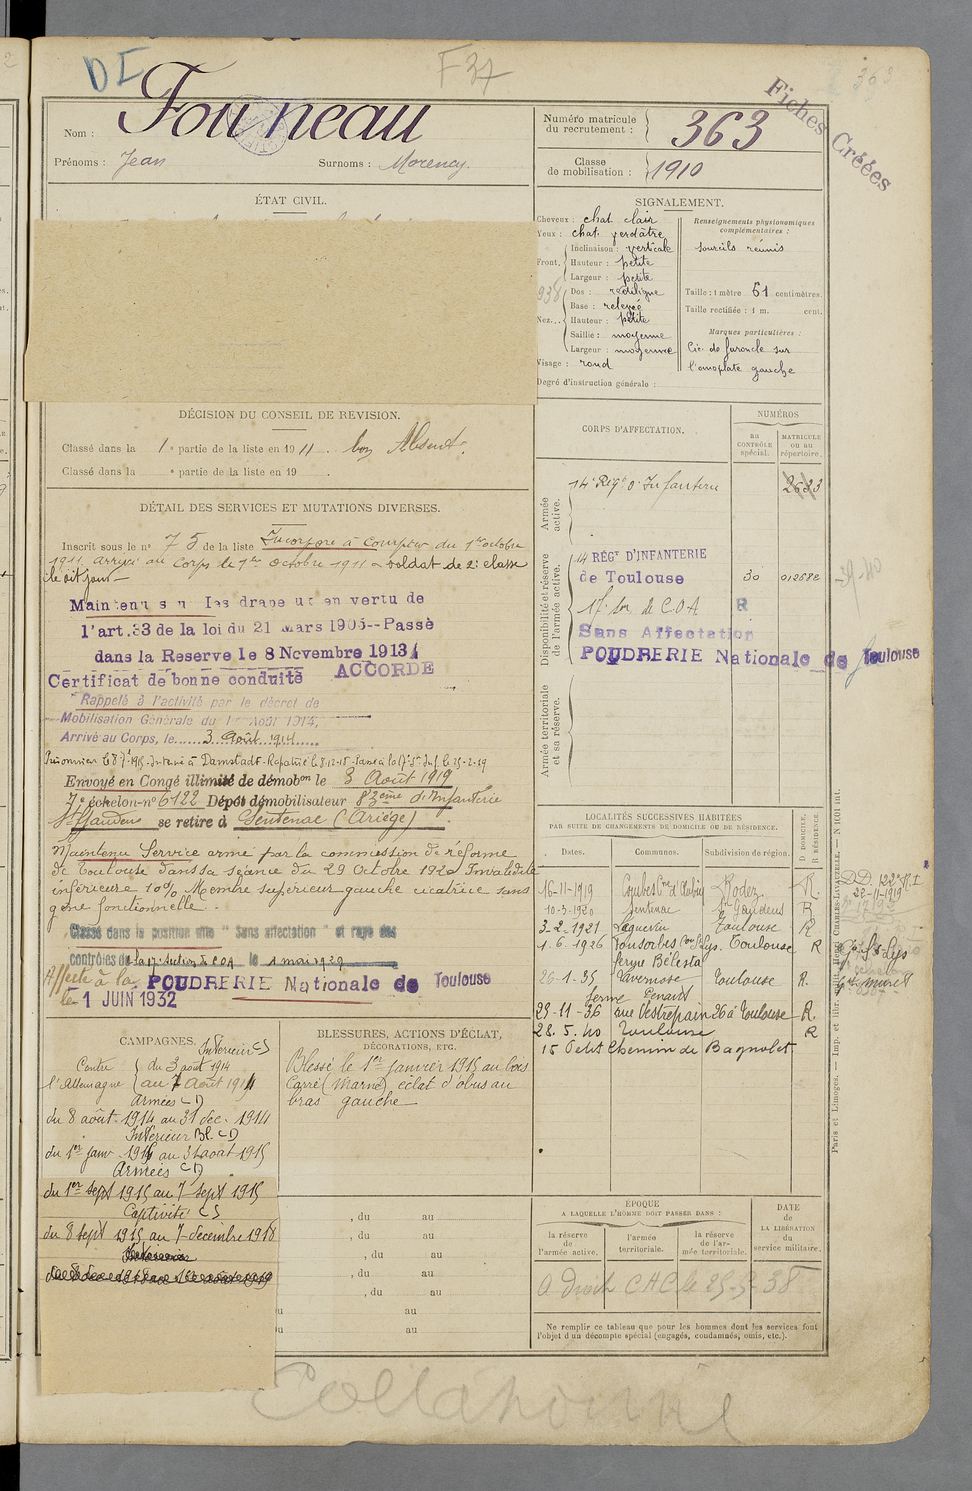 DI
F37
363
Fiches Créées
Nom : Fourneau
Prénoms : Jean Surnoms : Morency.
Numéro matricule du recrutement : 363
Classe de mobilisation : 1910
ÉTAT CIVIL.
SIGNALEMENT.
Cheveux : chat. clair
Yeux : chat. verdâtre
Front. Inclinaison : verticale
Hauteur : petite
Largeur : petite
Nez... Dos : rectiligne
Base : relevée
Hauteur : petite
Saillie : moyenne
Largeur : moyenne
Visage : rond
Degré d'instruction générale :
Renseignements physionomiques complémentaires :
sourcils réunis
Taille : 1 mètre 61 centimètres.
Taille rectifiée : 1 m. cent.
Marques particulières :
Cic. de furoncle sur
l'omoplate gauche
DÉCISION DU CONSEIL DE REVISION.
Classé dans la 1e partie de la liste en 1911. bon Absent.
Classé dans la e partie de la liste en 19 .
DÉTAIL DES SERVICES ET MUTATIONS DIVERSES.
Inscrit sous le n° 75 de la liste Incorporé à compter du 1er octobre
1911 arrivé au Corps le 1er octobre 1911 soldat de 2e classe
le dit jour
Maintenu sous les drapeaux en vertu de
l'art. 33 de la loi du 21 Mars 1905--Passé
dans la Reserve le 8 Novembre 1913
Certificat de bonne conduite ACCORDE
Rappelé à l'activité par le décret de
Mobilisation Générale du 1er Août 1914,
Arrivé au Corps, le 3 Août 1914
Prisonnier le 8 7bre 1915 - Interné à Damstadt - Rapatrié le 8-12-18 -
Envoyé en Congé illimité de démobon le 8 Août 1919
7e échelon - n° 6122 Dépôt démobilisateur 83ème d'Infanterie
St Gaudens se retire à Sentenac (Ariège)
Maintenu Service armé par la commission de réforme
de Toulouse dans sa séance du 29 Octobre 1920 Invalidité
inférieure 10% Membre supérieur gauche cicatrice sans
gêne fonctionnelle.
Classé dans la position dite " Sans affectation " et rayé des
contrôles de la 17e Section de COA le 1 mai 1929
Affecté à la POUDRERIE Nationale de Toulouse
le 1 JUIN 1932
CORPS D'AFFECTATION.
NUMÉROS
au CONTRÔLE spécial.
MATRICULE ou au répertoire.
Armée active.
14e Régt d'Infanterie 2633
Disponibilité et réserve de l'armée active.
14 RÉGt D'INFANTERIE
de Toulouse 30 012682
17e Son de C.O.A R
Sans Affectation
POUDRERIE Nationale de Toulouse
Armée territoriale et sa réserve.
LOCALITÉS SUCCESSIVES HABITÉES
PAR SUITE DE CHANGEMENTS DE DOMICILE OU DE RÉSIDENCE.
Dates. Communes. Subdivision de région. D DOMICILE. R RÉSIDENCE.
16-11-1919 Rodez R.
10-3-1920 Sentenac St Gaudens R
3-2-1921 Laguevin Toulouse R
1.6-1926 Fonsorbes Toulouse R
ferme Bélesta
26-1-35 Lavernose Toulouse R.
ferme
23-11-36 rue Vestrepain 26 à Toulouse R.
28.5.40 Toulouse R
15 Petit Chemin de Bagnolet
CAMPAGNES.
Intérieur CS
Contre l'Allemagne du 3 août 1914
au 7 Août 1914
Armées CD
du 8 août 1914 au 31 dec. 1914
Intérieur Bl. CD
du 1er janv 1915 au 31 aout 1915
Armées CD
du 1er sept 1915 au 7 sept 1915
Captivité CS
du 8 sept 1915 au 7 decembre 1918
BLESSURES, ACTIONS D'ÉCLAT,
DÉCORATIONS, ETC.
Blessé le 1er janvier 1915 au bois
Carré (Marne) éclat d'obus au
bras gauche
, du au
, du au
, du au
, du au
, du au
du au
du au
ÉPOQUE
A LAQUELLE L'HOMME DOIT PASSER DANS :
la réserve de l'armée active.
l'armée territoriale.
la réserve de l'armée territoriale.
DATE de LA LIBÉRATION du service militaire.
a droit CAC le 25-5-38
Ne remplir ce tableau que pour les hommes dont les services font
l'objet d'un décompte spécial (engagés, condamnés, omis, etc.).
Paris et Limoges. — Imp. et libr. milit. Henri CHARLES-LAVAUZELLE.